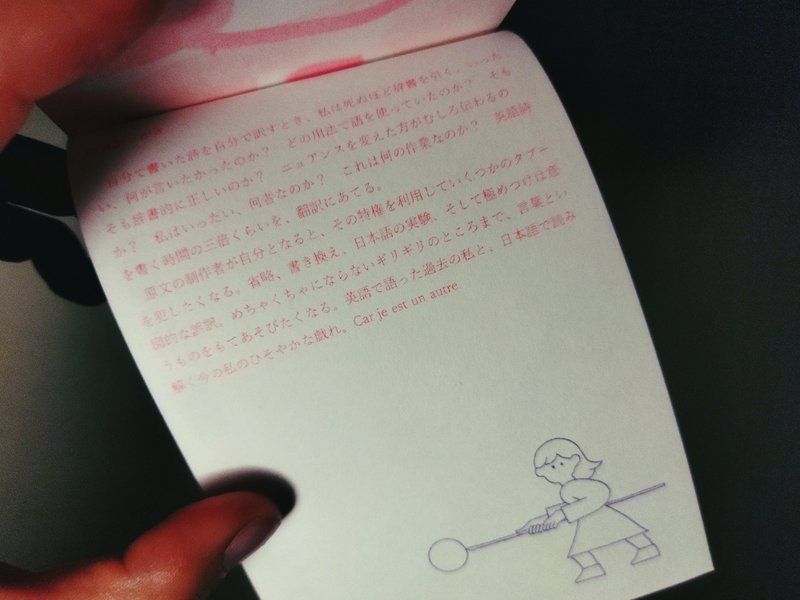 自分で書いた詩を自分で訳すとき、私は死ぬほど辞書を引く。いった
い、何が言いたかったのか？　どの用法で語を使っていたのか？　そも
そも辞書的に正しいのか？　ニュアンスを変えた方がむしろ伝わるの
か？　私はいったい、何者なのか？　これは何の作業なのか？　英語詩
を書く時間の三倍くらいを、翻訳にあてる。
原文の制作者が自分となると、その特権を利用していくつかのタブー
を犯したくなる。省略、書き換え、日本語の実験、そして極めつけは意
図的な誤訳。めちゃくちゃにならないギリギリのところまで、言葉とい
うものをもてあそびたくなる。英語で語った過去の私と、日本語で読み
解く今の私のひそやかな戯れ。Car je est un autre